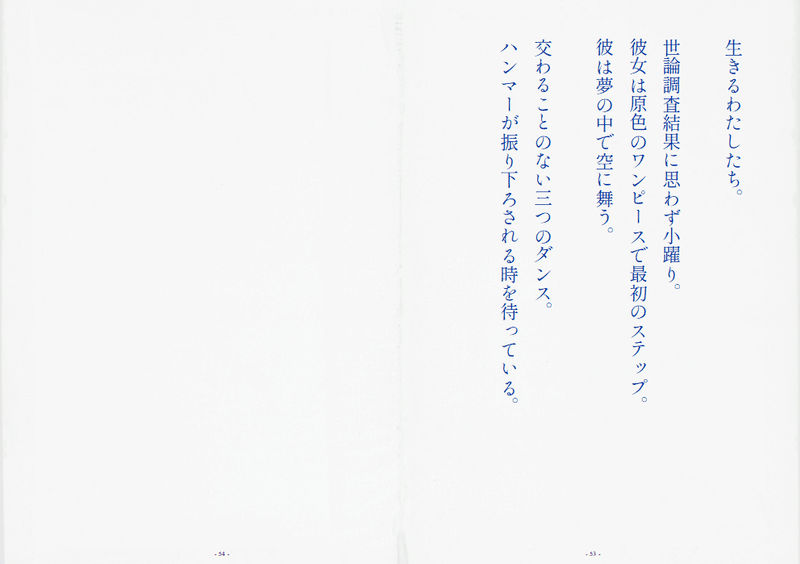 生きるわたしたち。
世論調査結果に思わず小躍り。
彼女は原色のワンピースで最初のステップ。
彼は夢の中で空に舞う。
交わることのない三つのダンス。
ハンマーが振り下ろされる時を待っている。
- 53 -
- 54 -